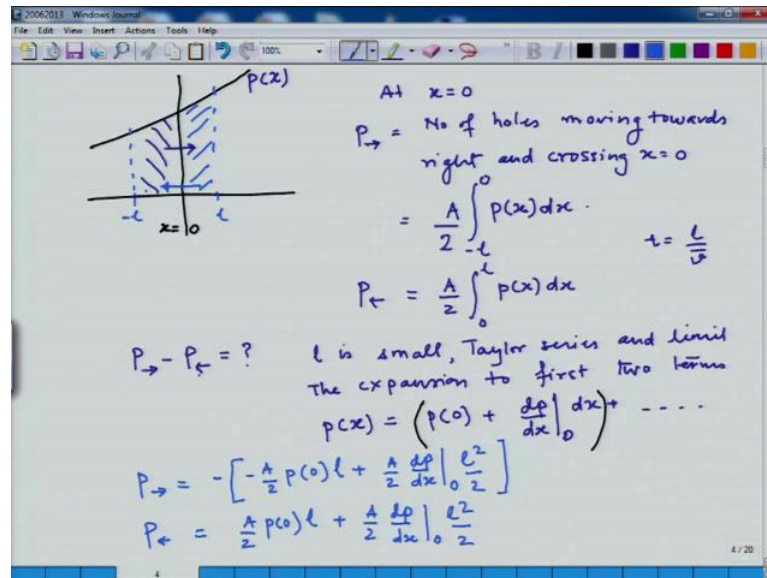 20062013 - Windows Journal
File Edit View Insert Actions Tools Help
100%
B I
p(x)
-l
l
x=0
At x=0
P→ = No of holes moving towards
right and crossing x=0
= A/2 ∫_{-l}^{0} p(x) dx .
t = l/v̄
P← = A/2 ∫_{0}^{l} p(x) dx
P→ - P← = ?
l is small, Taylor series and limit
the expansion to first two terms
p(x) = (p(0) + dp/dx|₀ dx) + ----
P→ = -[-A/2 p(0) l + A/2 dp/dx|₀ l²/2]
P← = A/2 p(0) l + A/2 dp/dx|₀ l²/2
4/20
4